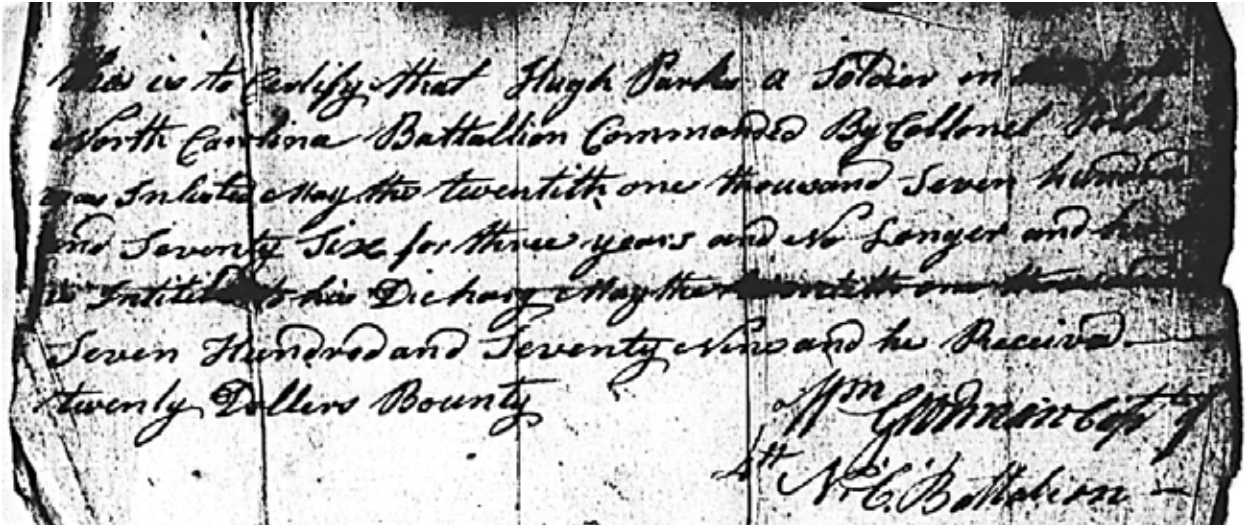 This is to Certify that Hugh Parks a Soldier in
North Carolina Battallion Commanded By Collonel Polk
was Inlisted May the twentith one thousand Seven hundred
and Seventy Six for three years and No Longer and he
is Intitled to his Discharg May the twentith one thousand
Seven Hundred and Seventy Nine and he Received
twenty Dollers Bounty
Wm Goodman Capt of
4th No. C. Battalion